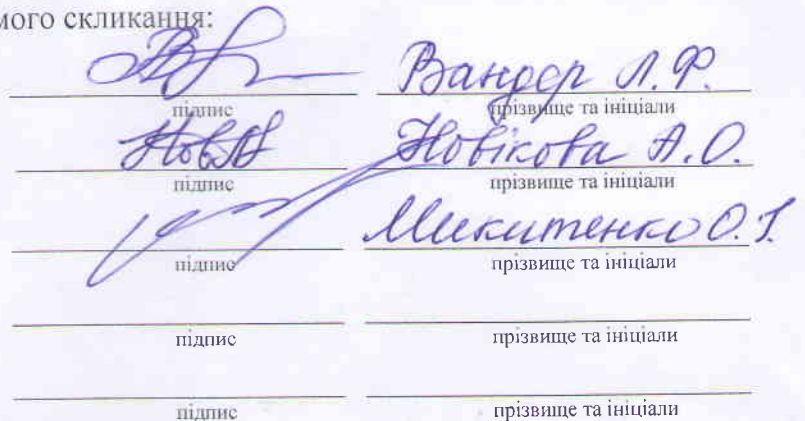 мого скликання:
Вандер Л. Ф.
підпис прізвище та ініціали
Нові﻿кова А. О.
підпис прізвище та ініціали
Микитенко О. І.
підпис прізвище та ініціали
підпис прізвище та ініціали
підпис прізвище та ініціали